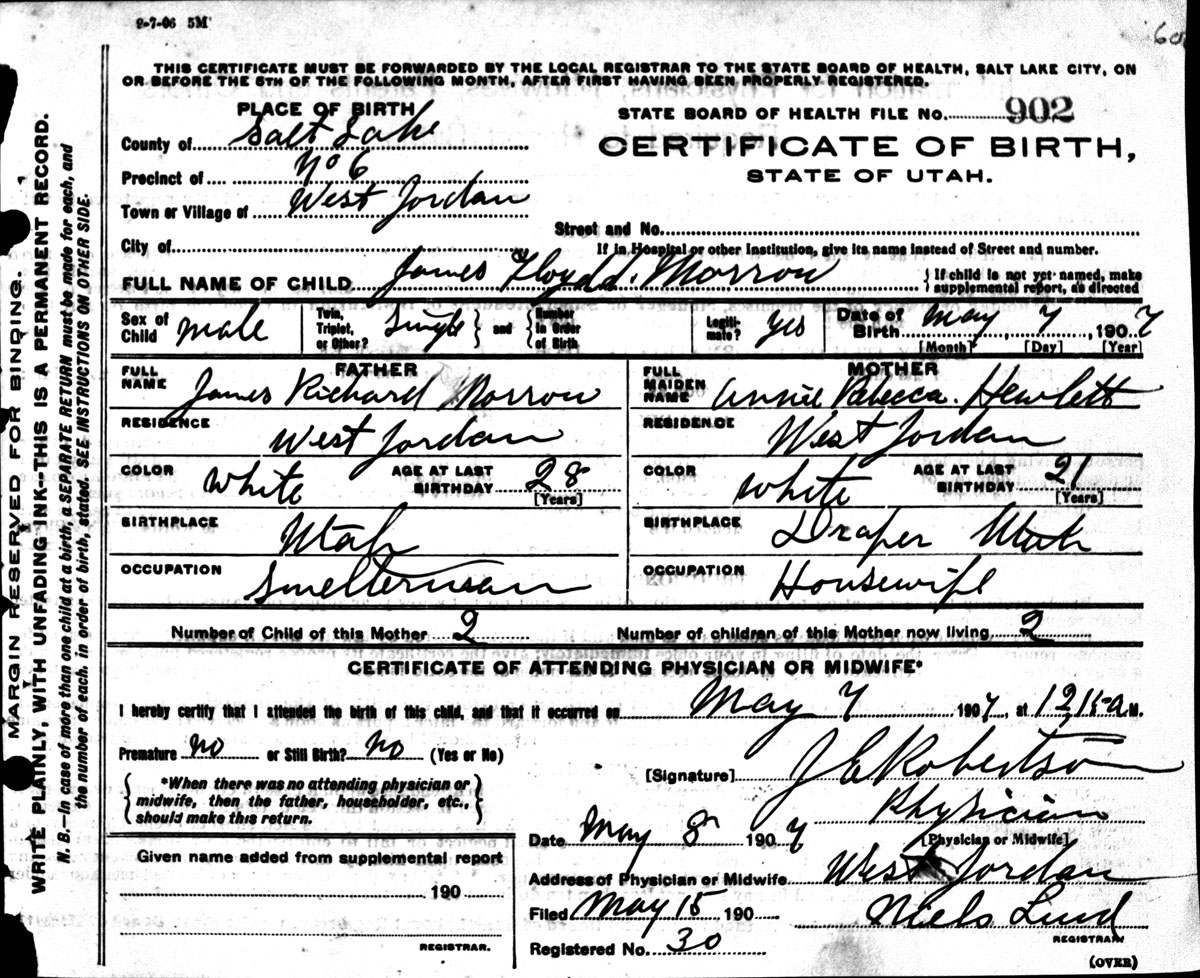 9-7-06 5M
60
THIS CERTIFICATE MUST BE FORWARDED BY THE LOCAL REGISTRAR TO THE STATE BOARD OF HEALTH, SALT LAKE CITY, ON
OR BEFORE THE 5TH OF THE FOLLOWING MONTH, AFTER FIRST HAVING BEEN PROPERLY REGISTERED.
PLACE OF BIRTH
STATE BOARD OF HEALTH FILE NO. 902
County of Salt Lake
CERTIFICATE OF BIRTH,
STATE OF UTAH.
Precinct of No 6
Town or Village of West Jordan
Street and No.
City of
If in Hospital or other Institution, give its name instead of Street and number.
FULL NAME OF CHILD James Floyd Morrow
{ If child is not yet named, make
supplemental report, as directed
Sex of Child male
Twin, Triplet, or Other? Single } and { Number in Order of Birth
Legitimate? yes
Date of Birth May 7, 1907
[Month] [Day] [Year]
FATHER
FULL NAME James Richard Morrow
RESIDENCE West Jordan
COLOR White AGE AT LAST BIRTHDAY 28
[Years]
BIRTHPLACE Utah
OCCUPATION Smelterman
MOTHER
FULL MAIDEN NAME Annie Rebecca Hewlett
RESIDENCE West Jordan
COLOR White AGE AT LAST BIRTHDAY 21
[Years]
BIRTHPLACE Draper Utah
OCCUPATION Housewife
Number of Child of this Mother 2 Number of children of this Mother now living 2
CERTIFICATE OF ATTENDING PHYSICIAN OR MIDWIFE*
I hereby certify that I attended the birth of this child, and that it occurred on May 7 1907, at 12,15 a M.
Premature no or Still Birth? no (Yes or No)
{ *When there was no attending physician or
midwife, then the father, householder, etc.,
should make this return. }
[Signature] J E Robertson
Physician
[Physician or Midwife]
Date May 8 1907
Given name added from supplemental report
190
REGISTRAR.
Address of Physician or Midwife West Jordan
Filed May 15 190 Niels Lind
REGISTRAR
Registered No. 30
(OVER)
MARGIN RESERVED FOR BINDING.
WRITE PLAINLY, WITH UNFADING INK--THIS IS A PERMANENT RECORD.
N. B.—In case of more than one child at a birth, a SEPARATE RETURN must be made for each, and
the number of each, in order of birth, stated. SEE INSTRUCTIONS ON OTHER SIDE.